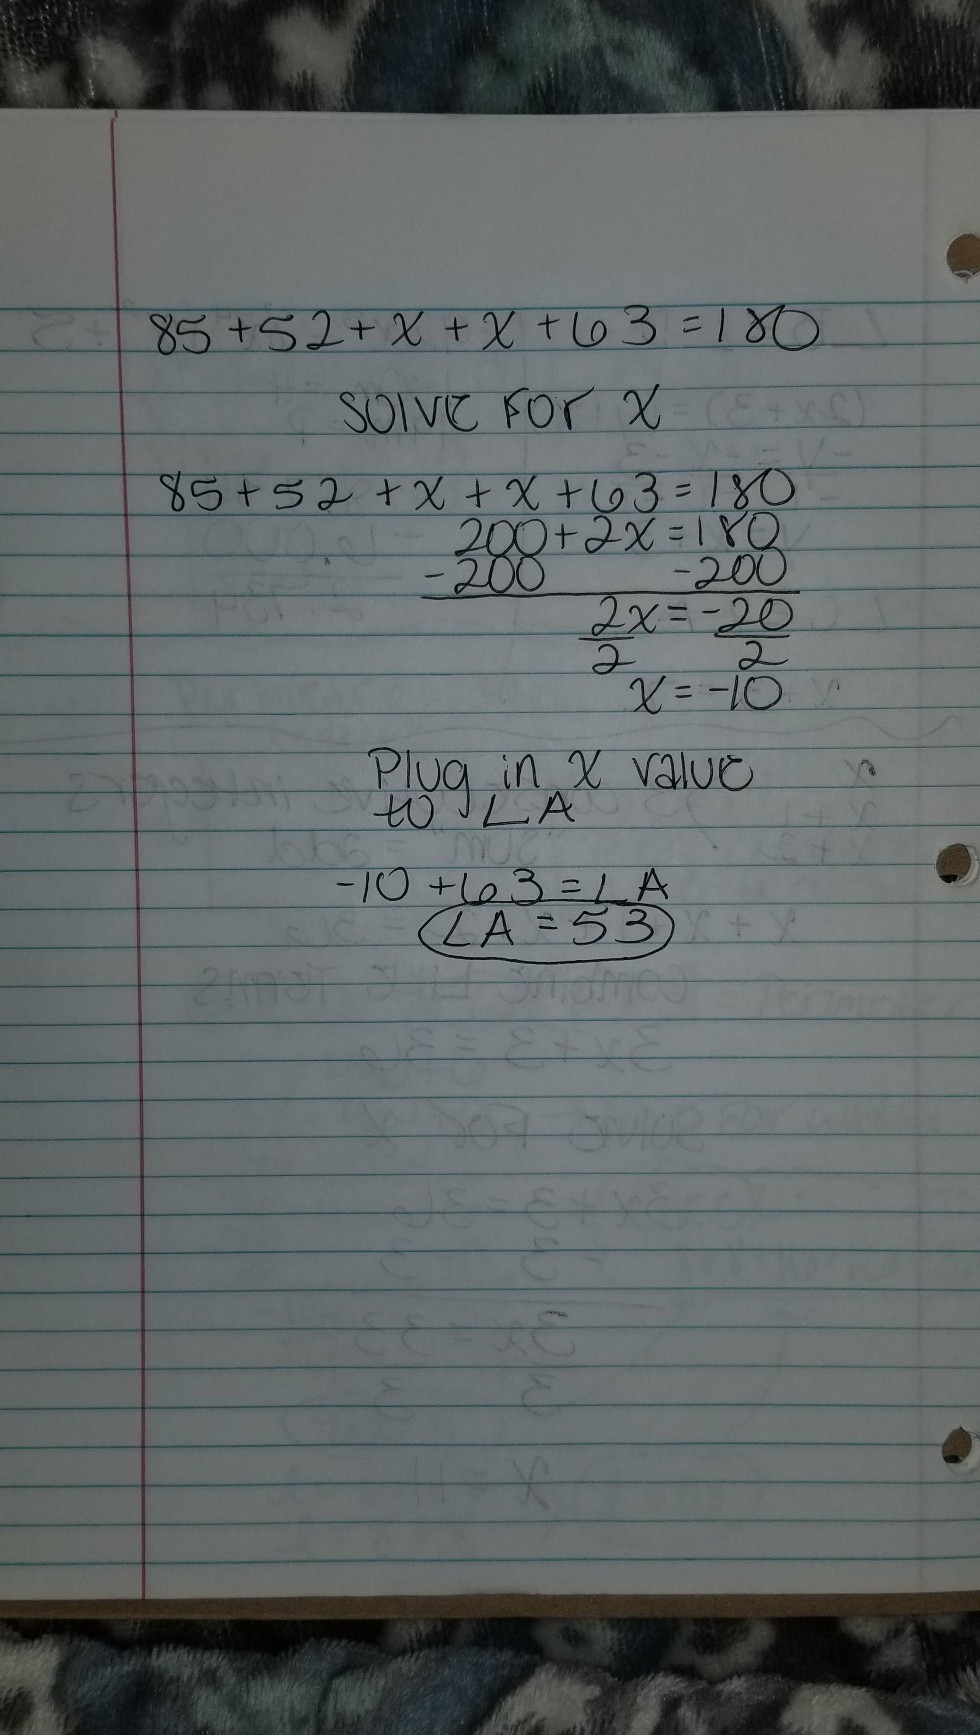 85+52+x+x+63=180
SOLVE FOR x
85+52+x+x+63=180
200+2x=180
-200 -200
2x=-20
2 2
x=-10
Plug in x value
to ∠A
-10+63=∠A
∠A=53